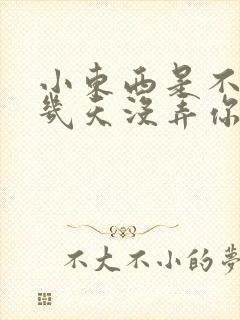 小東西是不
幾天沒弄你
不大不小的夢